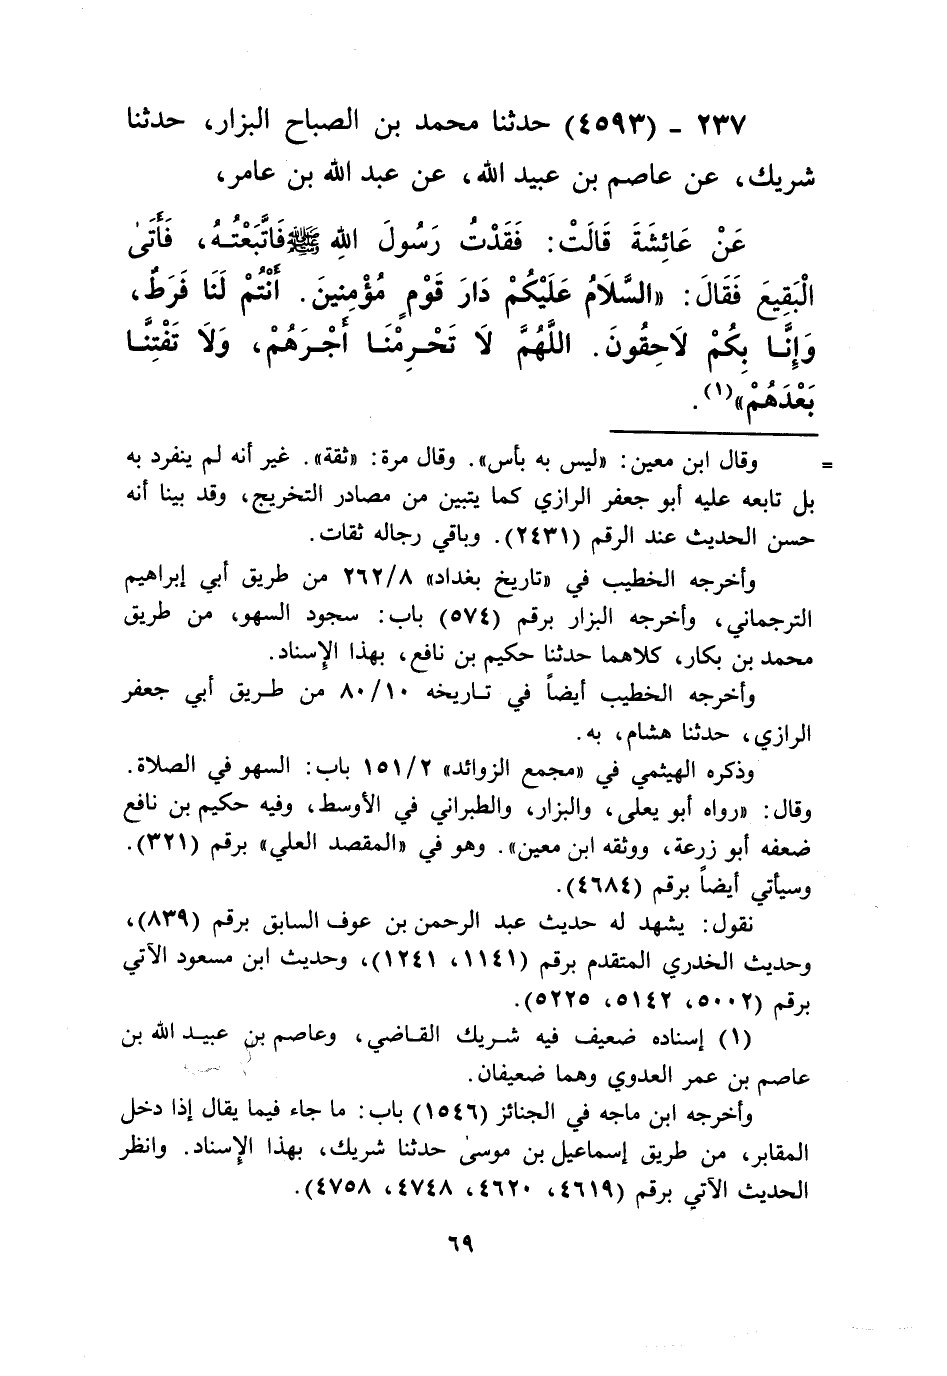 ٢٣٧ - (٤٥٩٣) حدثنا محمد بن الصباح البزار، حدثنا
شريك، عن عاصم بن عبيد الله، عن عبد الله بن عامر،
عَنْ عَائِشَةَ قَالَتْ: فَقَدْتُ رَسُولَ اللهِ ﷺ فَاتَّبَعْتُهُ، فَأَتَىٰ
الْبَقِيعَ فَقَالَ: «السَّلَامُ عَلَيْكُمْ دَارَ قَوْمٍ مُؤْمِنِينَ. أَنْتُمْ لَنَا فَرَطٌ،
وَإِنَّا بِكُمْ لَاحِقُونَ. اللَّهُمَّ لَا تَحْرِمْنَا أَجْرَهُمْ، وَلَا تَفْتِنَّا
بَعْدَهُمْ»(١).
= وقال ابن معين: «ليس به بأس». وقال مرة: «ثقة». غير أنه لم ينفرد به
بل تابعه عليه أبو جعفر الرازي كما يتبين من مصادر التخريج، وقد بينا أنه
حسن الحديث عند الرقم (٢٤٣١). وباقي رجاله ثقات.
وأخرجه الخطيب في «تاريخ بغداد» ٢٦٢/٨ من طريق أبي إبراهيم
الترجماني، وأخرجه البزار برقم (٥٧٤) باب: سجود السهو، من طريق
محمد بن بكار، كلاهما حدثنا حكيم بن نافع، بهذا الإسناد.
وأخرجه الخطيب أيضاً في تاريخه ٨٠/١٠ من طريق أبي جعفر
الرازي، حدثنا هشام، به.
وذكره الهيثمي في «مجمع الزوائد» ١٥١/٢ باب: السهو في الصلاة.
وقال: «رواه أبو يعلى، والبزار، والطبراني في الأوسط، وفيه حكيم بن نافع
ضعفه أبو زرعة، ووثقه ابن معين». وهو في «المقصد العلي» برقم (٣٢١).
وسيأتي أيضاً برقم (٤٦٨٤).
نقول: يشهد له حديث عبد الرحمن بن عوف السابق برقم (٨٣٩)،
وحديث الخدري المتقدم برقم (١١٤١، ١٢٤١)، وحديث ابن مسعود الآتي
برقم (٥٠٠٢، ٥١٤٢، ٥٢٢٥).
(١) إسناده ضعيف فيه شريك القاضي، وعاصم بن عبيد الله بن
عاصم بن عمر العدوي وهما ضعيفان.
وأخرجه ابن ماجه في الجنائز (١٥٤٦) باب: ما جاء فيما يقال إذا دخل
المقابر، من طريق إسماعيل بن موسىٰ حدثنا شريك، بهذا الإسناد. وانظر
الحديث الآتي برقم (٤٦١٩، ٤٦٢٠، ٤٧٤٨، ٤٧٥٨).
٦٩